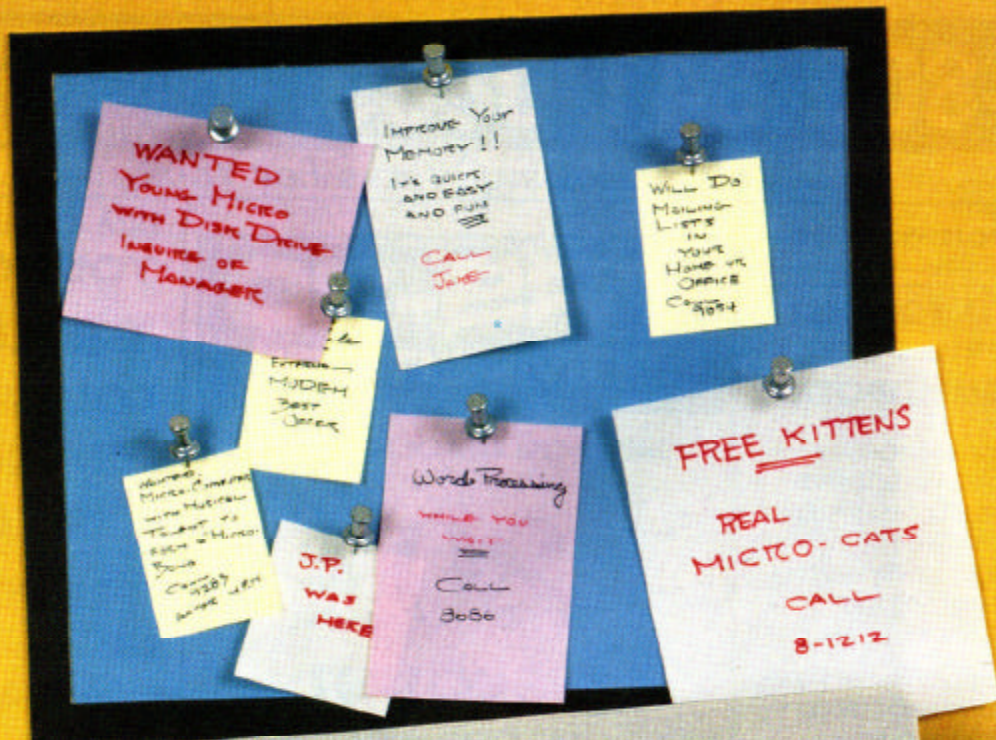 WANTED
YOUNG MICRO
WITH DISK DRIVE
INQUIRE OF
MANAGER
IMPROVE YOUR
MEMORY!!
IT'S QUICK
AND EASY
AND FUN
CALL
JAKE
WILL DO
MAILING
LISTS
IN
YOUR
HOME OR
OFFICE
MODEM
BEST
OFFER
WANTED,
MICRO-COMPUTER
WITH MUSICAL
TALENT TO
FORM A MICRO-
BAND
J.P.
WAS
HERE
Word Processing
WHILE YOU
WAIT
CALL
8080
FREE KITTENS
REAL
MICRO-CATS
CALL
8-1212